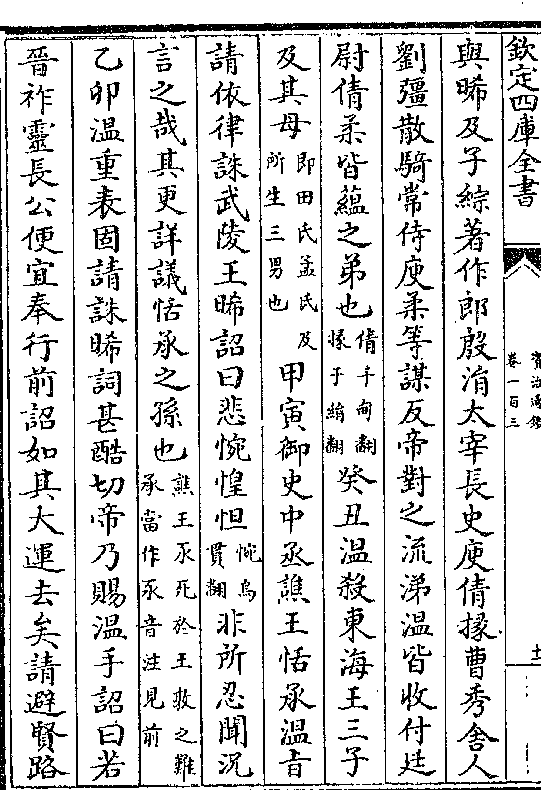 欽定四庫全書
資治通鑑
卷一百三
十二
與晞及子綜著作郎殷涓太宰長史庾倩掾曹秀舍人
劉彊散騎常侍庾柔等謀反帝對之流涕温皆收付廷
尉倩柔皆藴之弟也倩千甸翻掾于絹翻癸丑温殺東海王三子
及其母即田氏孟氏及所生三男也甲寅御史中丞譙王恬承温㫖
請依律誅武陵王晞詔曰悲惋惶怛惋烏貫翻非所忍聞況
言之哉其更詳議恬承之孫也譙王氶死於王敦之難承當作氶音注見前
乙卯温重表固請誅晞詞甚酷切帝乃賜温手詔曰若
晉祚靈長公便宜奉行前詔如其大運去矣請避賢路